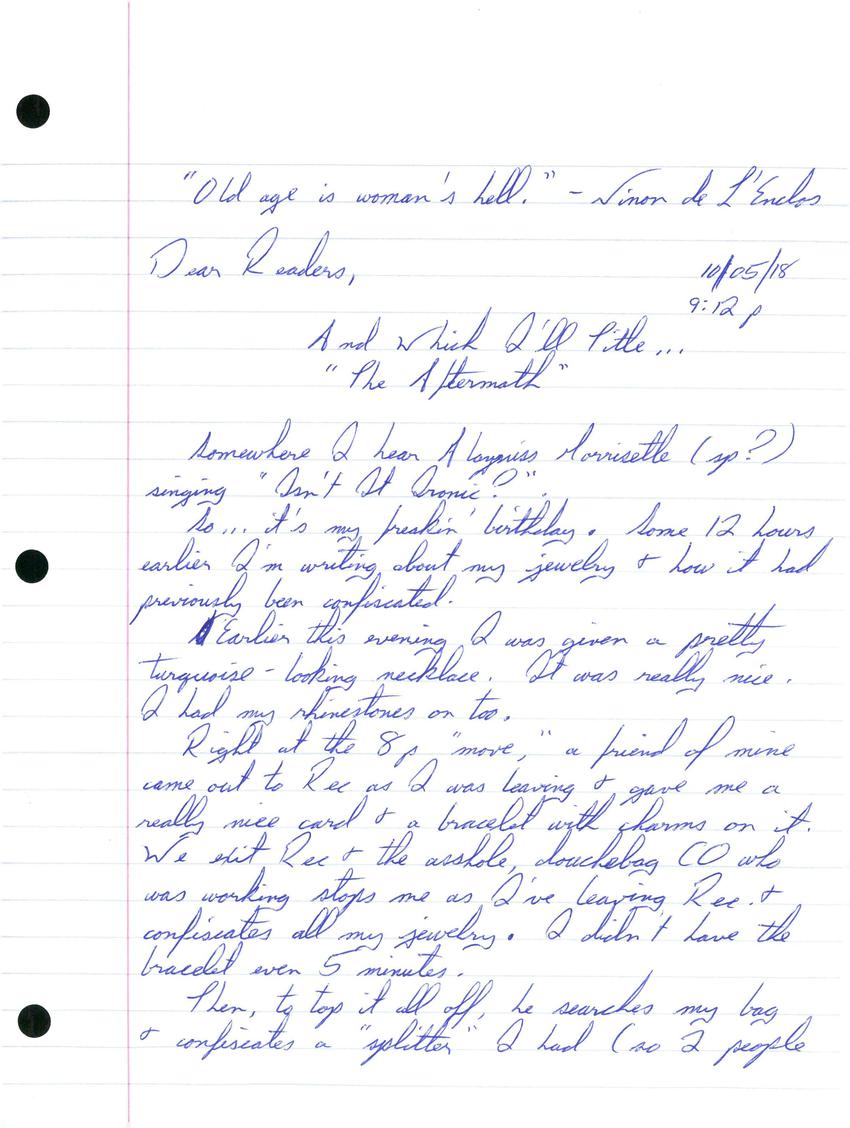 "Old age is woman's hell." - Ninon de L'Enclos
Dear Readers,
10/05/18
9:12 p
And Which I'll Title...
"The Aftermath"
Somewhere I hear Alaymiss Morrisette (sp?)
singing "Isn't It Ironic?".
So... it's my freakin' birthday. Some 12 hours
earlier I'm writing about my jewelry & how it had
previously been confiscated.
Earlier this evening I was given a pretty
turquoise-looking necklace. It was really nice.
I had my rhinestones on too.
Right at the 8p "move," a friend of mine
came out to Rec as I was leaving & gave me a
really nice card & a bracelet with charms on it.
We exit Rec & the asshole, douchebag CO who
was working stops me as I've leaving Rec. &
confiscates all my jewelry. I didn't have the
bracelet even 5 minutes.
Then, to top it all off, he searches my bag
& confiscates a "splitter" I had (so 2 people